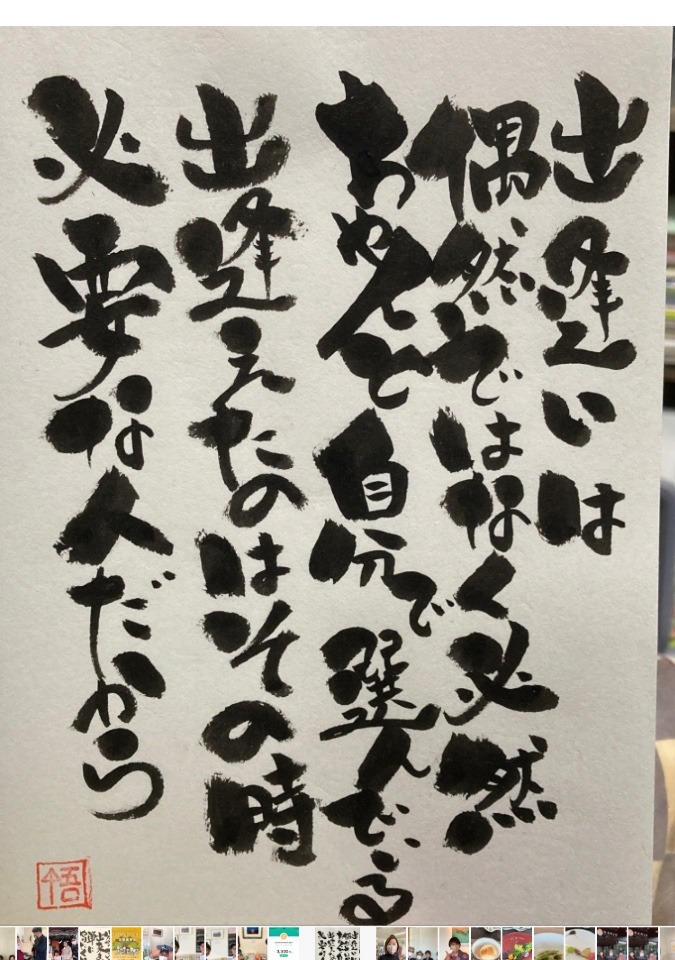 出逢いは
偶然ではなく必然
ちゃんと自分で選んでいる
出逢えたのはその時
必要な人だから
悟